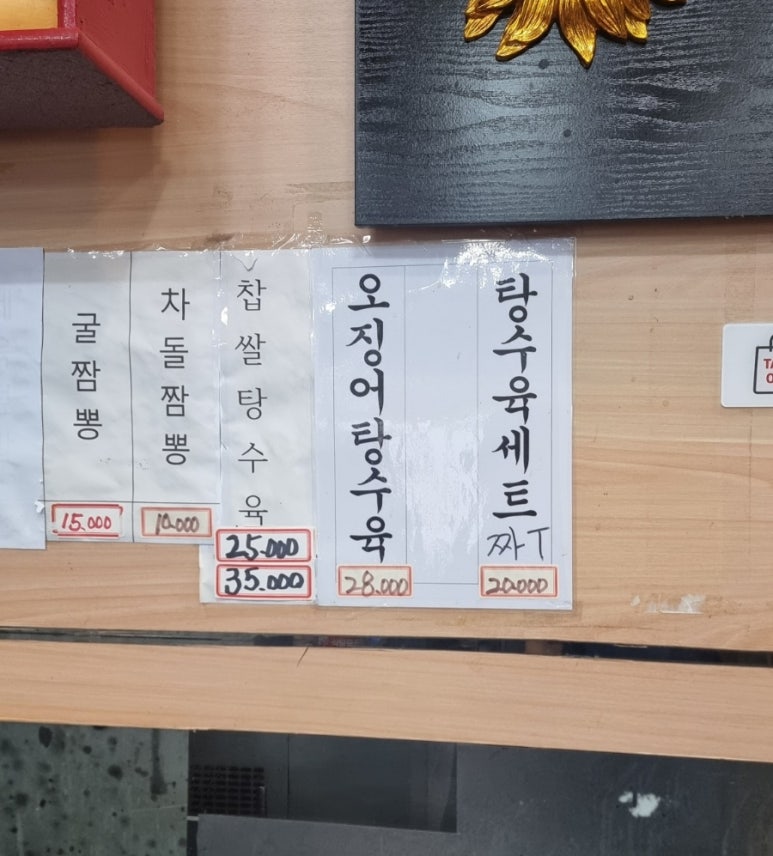 굴짬뽕
15.000
차돌짬뽕
10.000
찹쌀탕수육
25.000
35.000
오징어탕수육
28.000
탕수육세트
짜T
20.000